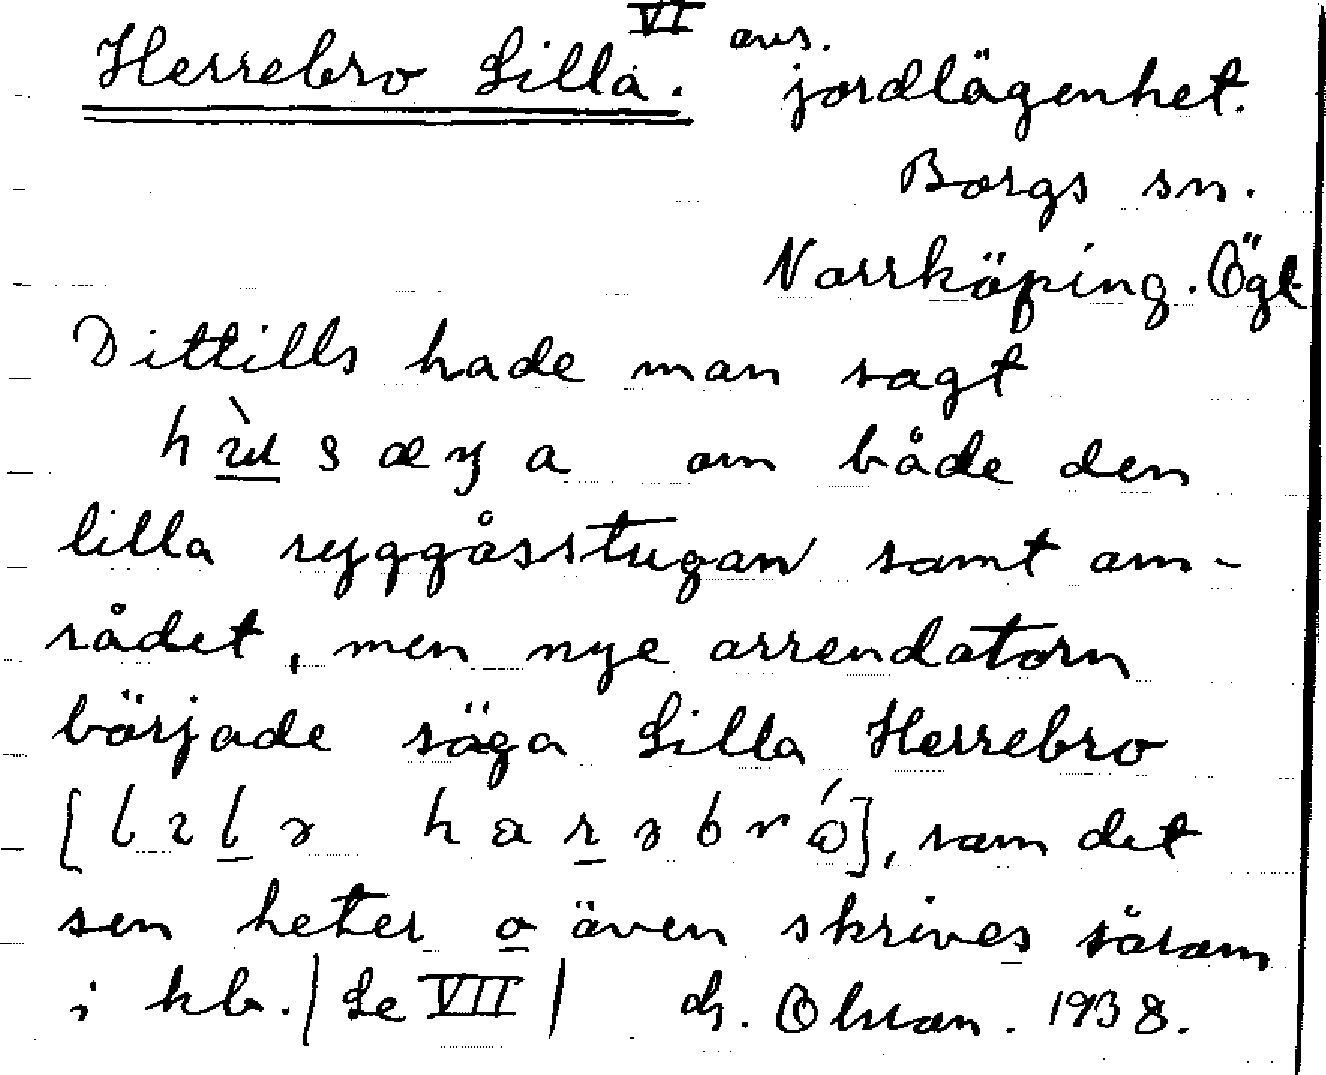 Herrebro Lilla. VI avs. jordlägenhet.
Borgs sn.
Norrköping. Ögl.
Dittills hade man sagt
om både den
lilla ryggåsstugan samt om-
rådet, men nye arrendatorn
började säga Lilla Herrebro
som det
sen heter o även skrives såsom
i kb. /Se VII/ Olsson. 1938.